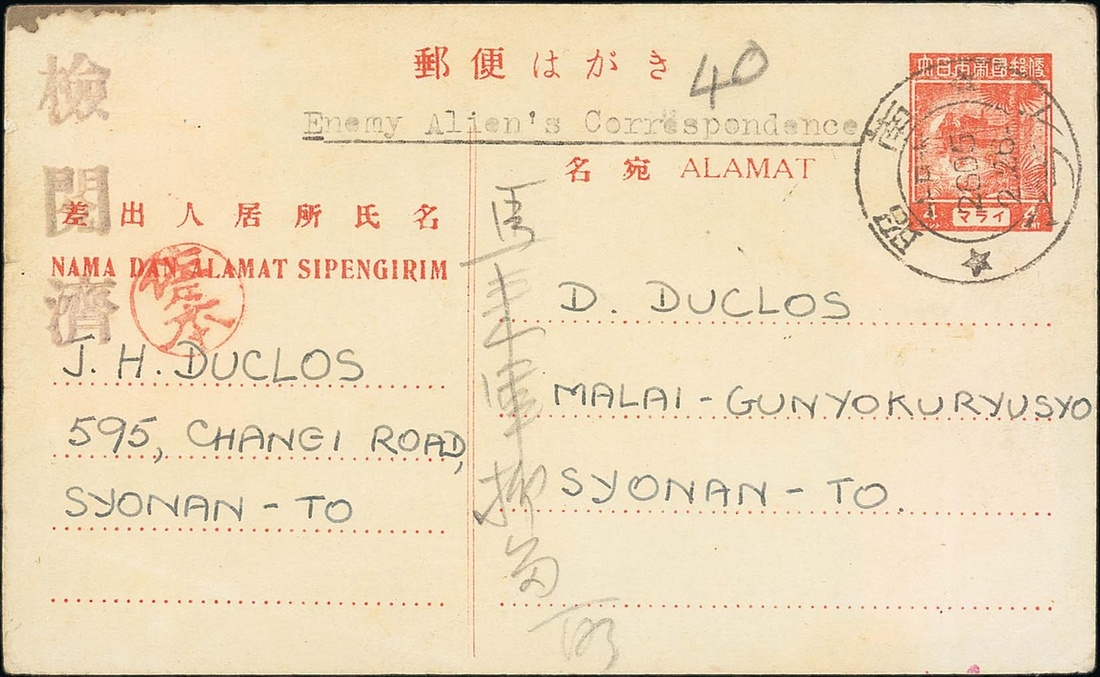 郵便はがき
40
Enemy Alien's Correspondence
名宛 ALAMAT
差出人居所氏名
NAMA DAN ALAMAT SIPENGIRIM
検閲濟
J. H. DUCLOS
595, CHANGI ROAD,
SYONAN - TO
D. DUCLOS
MALAI - GUNYOKURYUSYO
SYONAN - TO.
馬来軍抑留所
大日本帝國郵便
マライ
昭南
2605